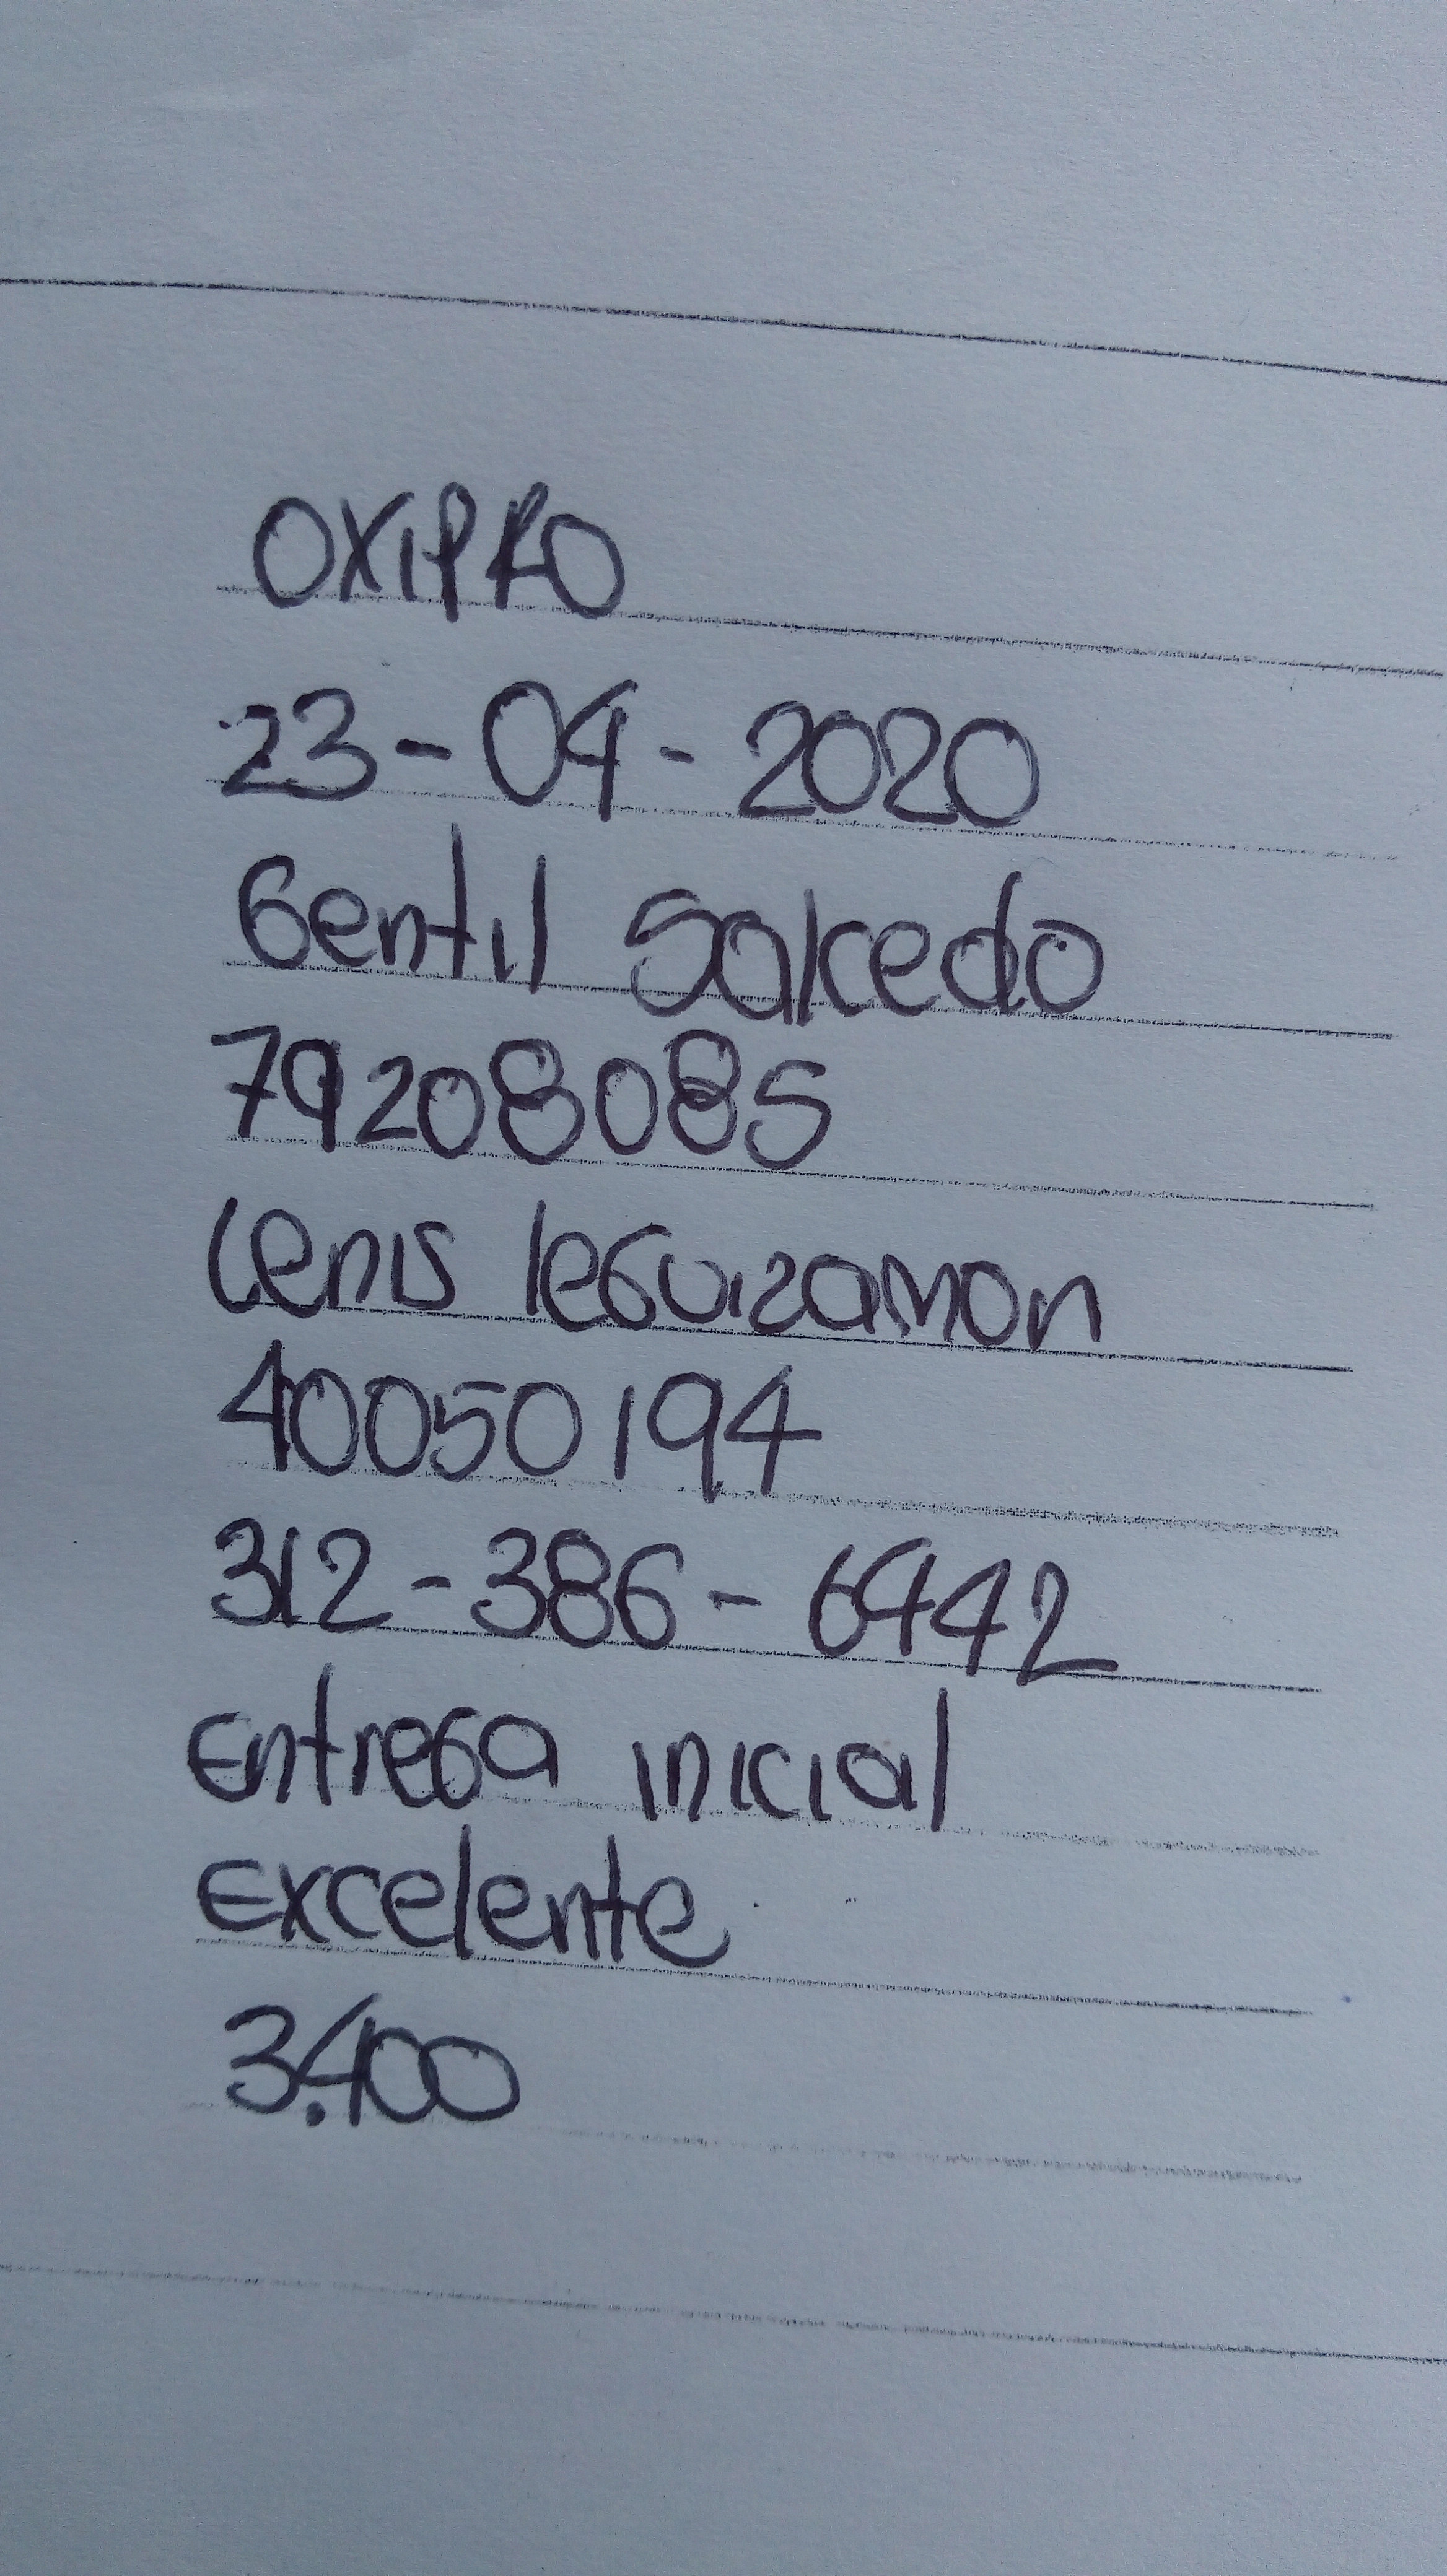 OXIPRO
23-04-2020
Gentil Salcedo
79208085
Lenis leGuizamon
40050194
312-386-6442
EntreGa inicial
Excelente
3.400